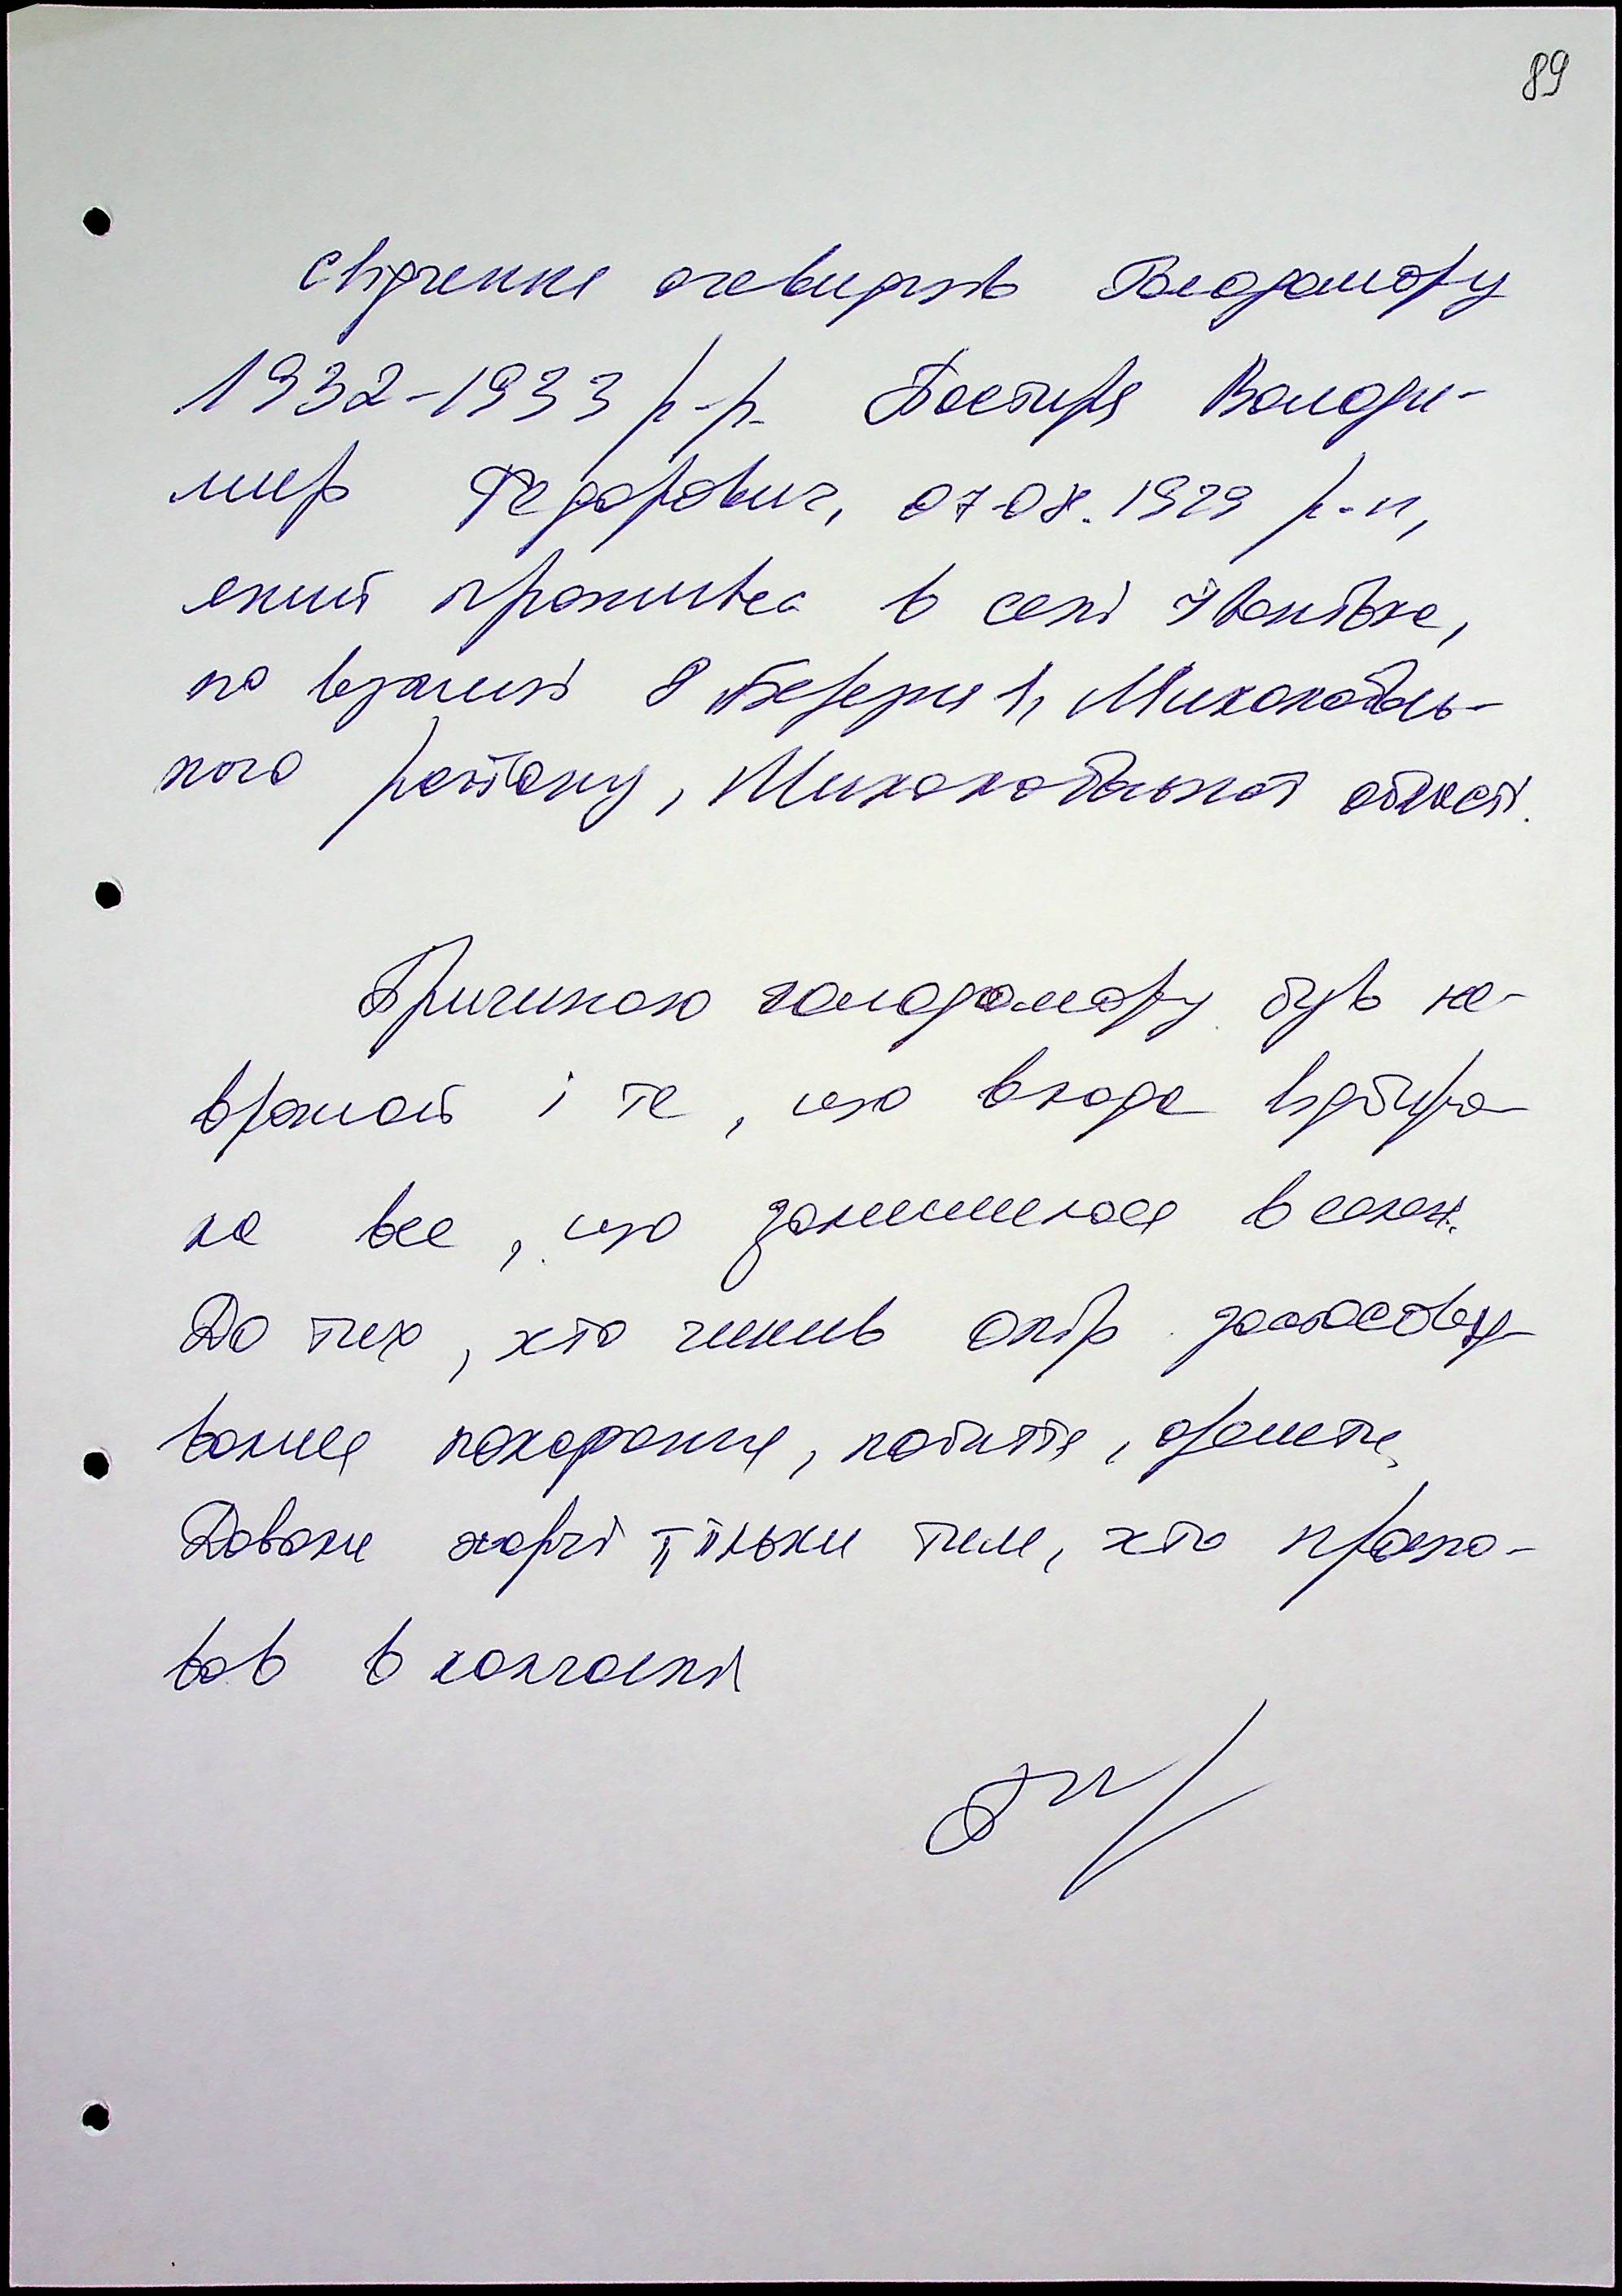 89
Свідчення очевидців Голодомору
1932-1933 р.р. Постиря Володи-
мир Федорович, 07.08.1929 р.н,
який проживає в селі
по вулиці 8 Березня 1, Миколаївсь-
кого району, Миколаївської області.
Причиною голодомору був не-
врожай і те, що влада відбира-
ла все, що залишилося в селян.
До тих, хто чинив опір застосову-
вались покарання, побиття, арешти.
Давали харчі тільки тим, хто працю-
вав в колгоспі